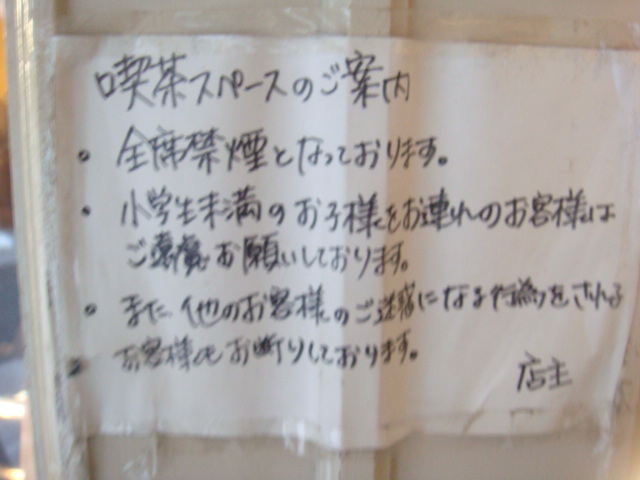 喫茶スペースのご案内
・全席禁煙となっております。
・小学生未満のお子様をお連れのお客様は
ご遠慮お願いしております。
・また他のお客様のご迷惑になる行為をされる
お客様もお断りしております。
店主